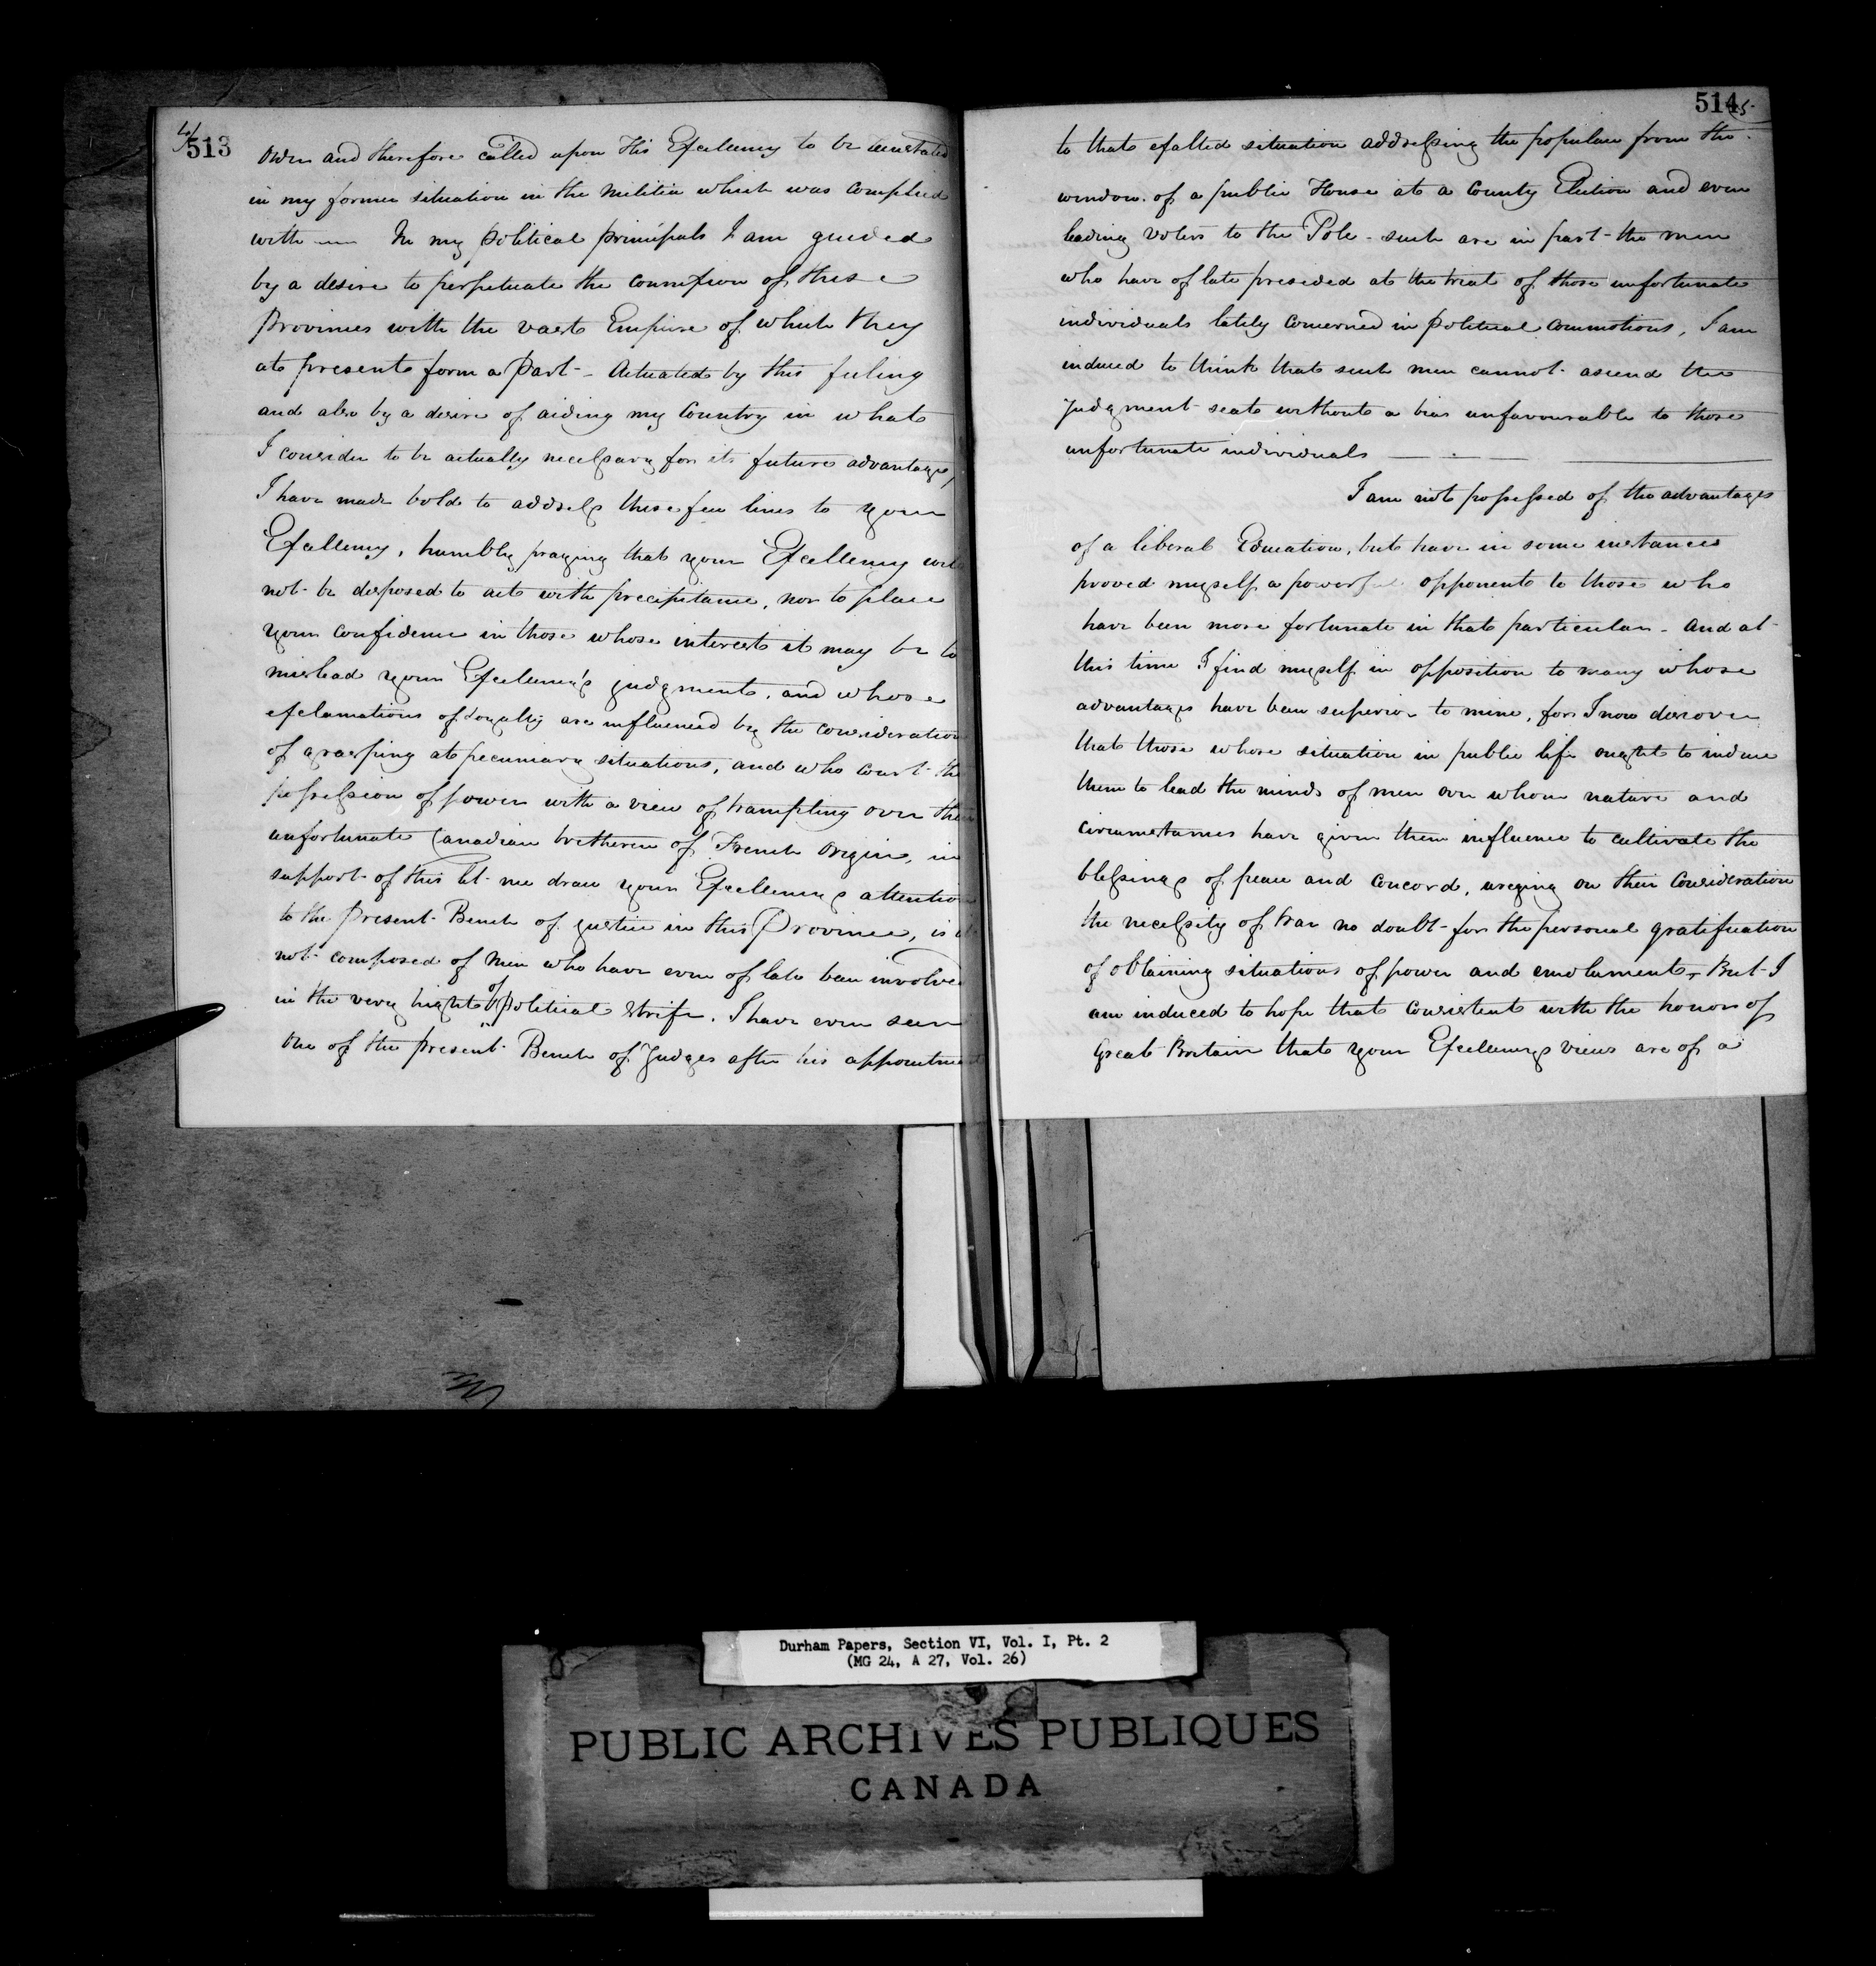 4/
513
Order and therefore called upon His Excellency to be
in my former situation in the Militia which was complied
with —— In my political principals I am guided
by a desire to perpetuate the connexion of these
Provinces with the vast Empire of which they
at present form a Part - Actuated by this feeling
and also by a desire of aiding my Country in what
I consider to be actually necessary for its future advantages,
I have made bold to address these few lines to your
Excellency, humbly praying that your Excellency will
not be disposed to act with precipitance, nor to place
your confidence in those whose interest it may be to
mislead your Excellency's judgment, and whose
exclamations of Loyalty are influenced by the consideration
of grasping at pecuniary situations, and who court the
possession of power with a view of trampling over their
unfortunate Canadian bretheren of French Origin, in
support of this let me draw your Excellency's attention
to the Present Bench of justice in this Province, is it
not composed of Men who have even of late been involved
in the very hight of political strife. I have even seen
one of the present Bench of Judges after his appointment
514
5.
to that exalted situation addressing the populace from the
window of a public House at a County Election and even
leading voters to the Pole - such are in part the men
who have of late presided at the trial of those unfortunate
individuals lately concerned in political commotions, I am
induced to think that such men cannot ascend the
Judgment seat without a bias unfavourable to those
unfortunate individuals —— - ——
I am not possessed of the advantages
of a liberal Education, but have in some instances
proved myself a powerful opponent to those who
have been more fortunate in that particular - And at
this time I find myself in opposition to many whose
advantages have been superior to mine, for I now discover
that those whose situation in public life ought to induce
them to lead the minds of men over whom nature and
circumstances have given them influence to cultivate the
blessings of peace and concord, urging on their consideration
the necessity of War no doubt for the personal gratification
of obtaining situations of power and emolument, But I
am induced to hope that consistent with the honor of
Great Britain that your Excellency's views are of a
Durham Papers, Section VI, Vol. I, Pt. 2
(MG 24, A 27, Vol. 26)
PUBLIC ARCHIVES PUBLIQUES
CANADA